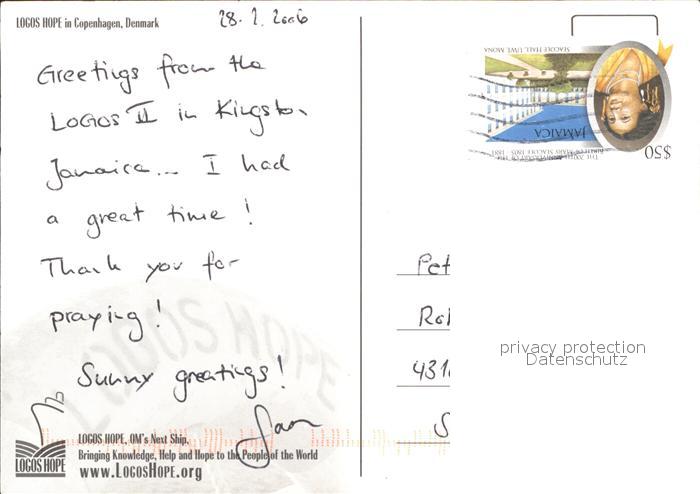 LOGOS HOPE in Copenhagen, Denmark
Greetings from the
LOGOS II in Kingston,
Jamaica... I had
a great time!
Thank you for
praying!
Sunny greetings!
LOGOS HOPE
LOGOS HOPE
LOGOS HOPE, OM's Next Ship,
Bringing Knowledge, Help and Hope to the People of the World
www.LogosHope.org
$50
JAMAICA
THE 200TH ANNIVERSARY OF THE
BIRTH OF MARY SEACOLE 1805 - 1881
SEACOLE HALL, UWI, MONA
Pet
431
S
privacy protection
Datenschutz